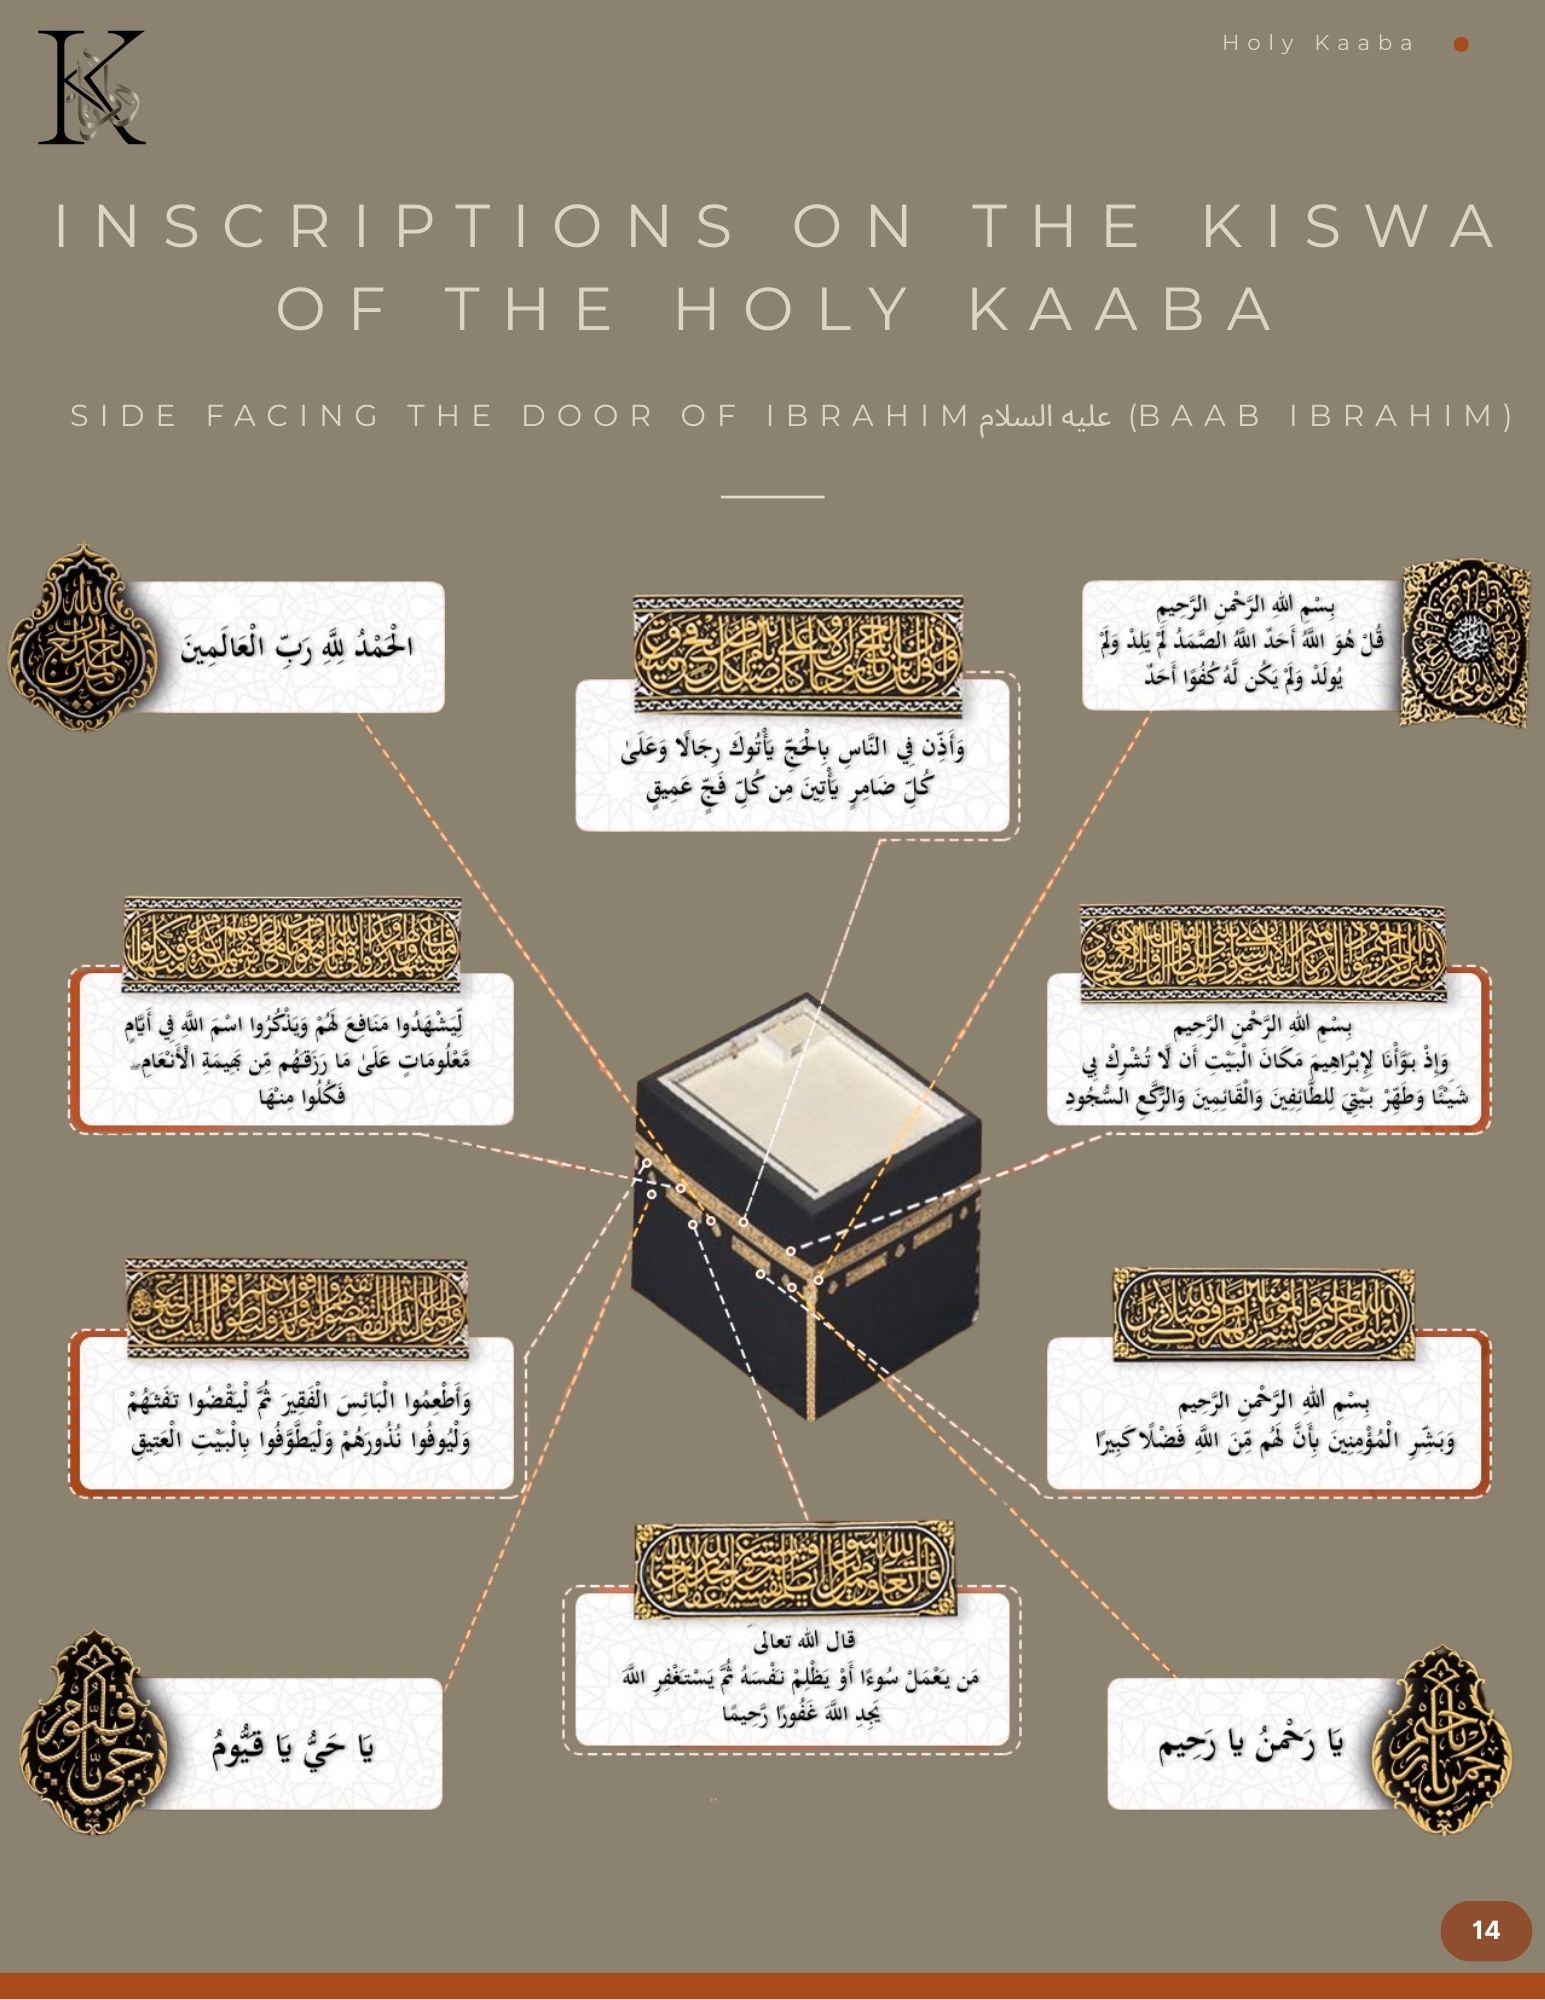 Holy Kaaba
K
INSCRIPTIONS ON THE KISWA
OF THE HOLY KAABA
SIDE FACING THE DOOR OF IBRAHIM عليه السلام (BAAB IBRAHIM)
الْحَمْدُ لِلَّهِ رَبِّ الْعَالَمِينَ
وَأَذِّن فِي النَّاسِ بِالْحَجِّ يَأْتُوكَ رِجَالًا وَعَلَىٰ
كُلِّ ضَامِرٍ يَأْتِينَ مِن كُلِّ فَجٍّ عَمِيقٍ
بِسْمِ اللهِ الرَّحْمٰنِ الرَّحِيمِ
قُلْ هُوَ اللَّهُ أَحَدٌ اللَّهُ الصَّمَدُ لَمْ يَلِدْ وَلَمْ
يُولَدْ وَلَمْ يَكُن لَّهُ كُفُوًا أَحَدٌ
لِّيَشْهَدُوا مَنَافِعَ لَهُمْ وَيَذْكُرُوا اسْمَ اللَّهِ فِي أَيَّامٍ
مَّعْلُومَاتٍ عَلَىٰ مَا رَزَقَهُم مِّن بَهِيمَةِ الْأَنْعَامِ ۖ
فَكُلُوا مِنْهَا
بِسْمِ اللهِ الرَّحْمٰنِ الرَّحِيمِ
وَإِذْ بَوَّأْنَا لِإِبْرَاهِيمَ مَكَانَ الْبَيْتِ أَن لَّا تُشْرِكْ بِي
شَيْئًا وَطَهِّرْ بَيْتِيَ لِلطَّائِفِينَ وَالْقَائِمِينَ وَالرُّكَّعِ السُّجُودِ
وَأَطْعِمُوا الْبَائِسَ الْفَقِيرَ ثُمَّ لْيَقْضُوا تَفَثَهُمْ
وَلْيُوفُوا نُذُورَهُمْ وَلْيَطَّوَّفُوا بِالْبَيْتِ الْعَتِيقِ
بِسْمِ اللهِ الرَّحْمٰنِ الرَّحِيمِ
وَبَشِّرِ الْمُؤْمِنِينَ بِأَنَّ لَهُم مِّنَ اللَّهِ فَضْلًا كَبِيرًا
قال الله تعالىَ
مَن يَعْمَلْ سُوءًا أَوْ يَظْلِمْ نَفْسَهُ ثُمَّ يَسْتَغْفِرِ اللَّهَ
يَجِدِ اللَّهَ غَفُورًا رَّحِيمًا
يَا حَيُّ يَا قَيُّومُ
يَا رَحْمٰنُ يا رَحِيم
14